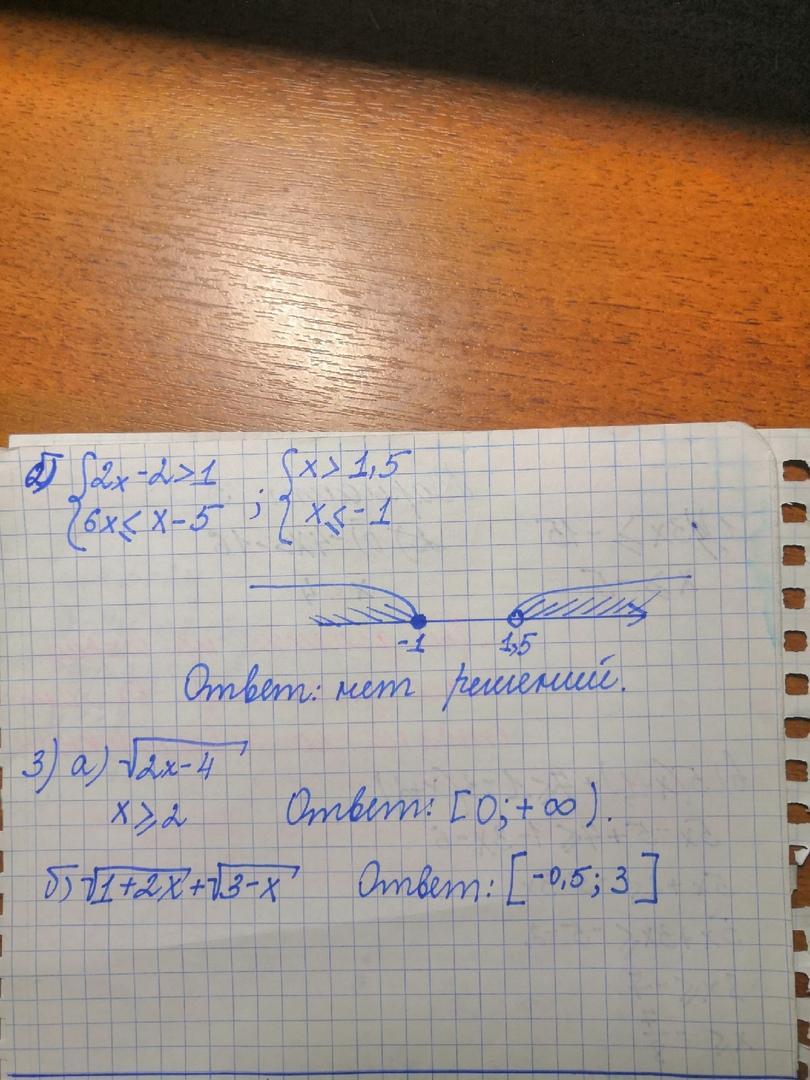 б) {2x-2>1 ; {x>1,5
{6x⩽x-5 {x⩽-1
-1 1,5
Ответ: нет решений.
3) а) √2x-4
x⩾2 Ответ: [0;+∞).
б) √1+2x+√3-x Ответ: [-0,5;3]